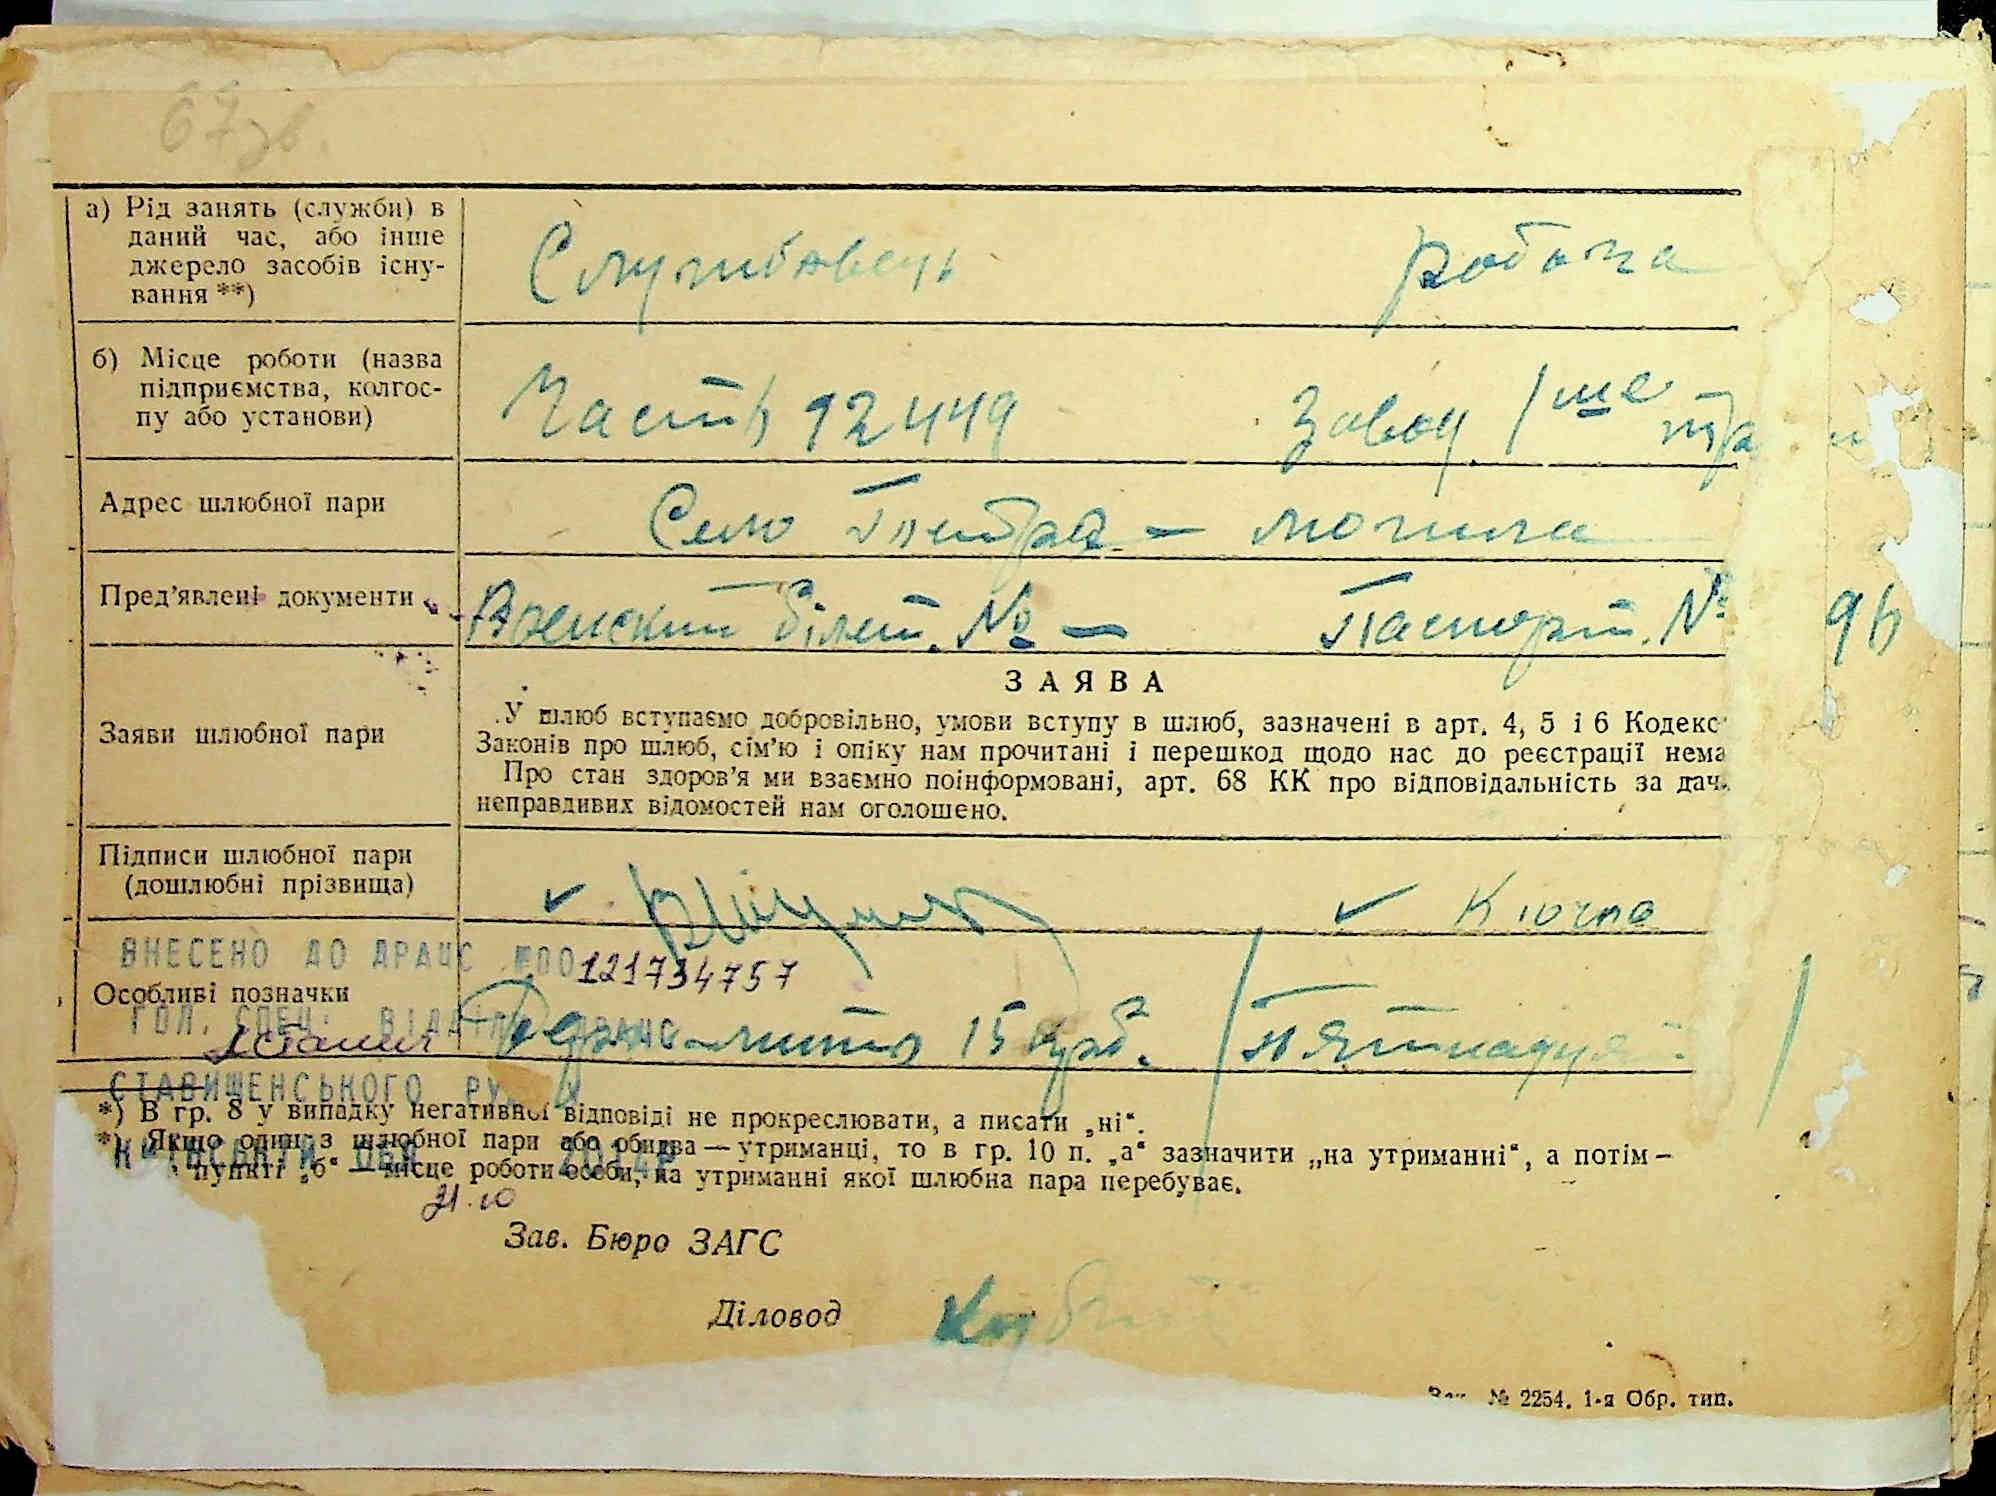 67 зв.
а) Рід занять (служби) в
даний час, або інше
джерело засобів існу-
вання **)
Службовець робоча
б) Місце роботи (назва
підприємства, колгос-
пу або установи)
Часть 92449 Завод
Адрес шлюбної пари
Село Петра - могила
Пред'явлені документи
Военский білет. № — Паспорт. №
ЗАЯВА
Заяви шлюбної пари
У шлюб вступаємо добровільно, умови вступу в шлюб, зазначені в арт. 4, 5 і 6 Кодекс
Законів про шлюб, сім'ю і опіку нам прочитані і перешкод щодо нас до реєстрації нема
Про стан здоров'я ми взаємно поінформовані, арт. 68 КК про відповідальність за дач
неправдивих відомостей нам оголошено.
Підписи шлюбної пари
(дошлюбні прізвища)
Ключка
ВНЕСЕНО ДО ДРАЦС №00121734757
Особливі позначки
ГОЛ. СПЕЦ. ВІДДІЛ ДРАЦС
15 крб. /П'ятнадця /
СТАВИЩЕНСЬКОГО РУ
*) В гр. 8 у випадку негативної відповіді не прокреслювати, а писати „ні“.
*) Якщо один з шлюбної пари або обидва — утриманці, то в гр. 10 п. „а“ зазначити „на утриманні“, а потім —
пункті „б“ — місце роботи особи, на утриманні якої шлюбна пара перебуває.
21.10
Зав. Бюро ЗАГС
Діловод
№ 2254. 1-я Обр. тип.